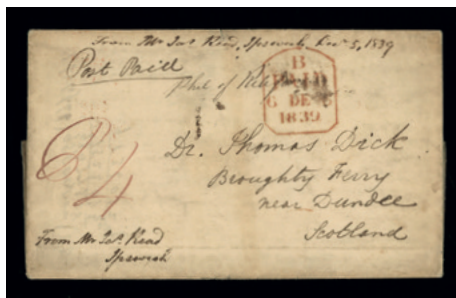 From Mr Jas. Read, Ipswich, Dec 5, 1839
Post Paid
Phil of
B
PAID
DE 5
1839
Dr. Thomas Dick
Broughty Ferry
near Dundee
Scotland
P 4
From Mr Jas. Read
Ipswich